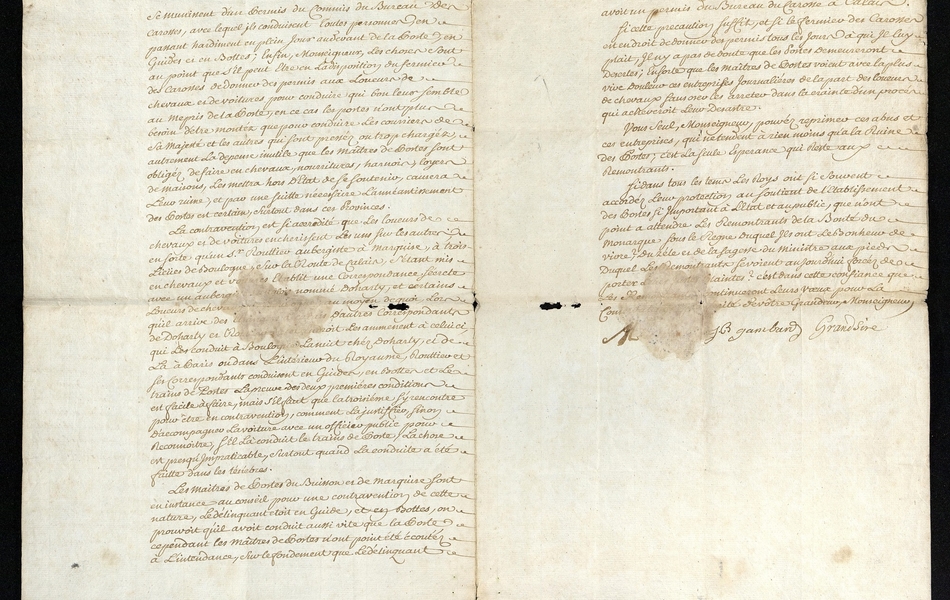 se munissent d'un Permis du Commis du Bureau des
Carosses, avec lequel ils conduisent toutes personnes, en
passant hardiment en plein Jour audevant de la Poste, en
Guides et en Bottes; Enfin, Monseigneur, Les choses sont
au point que s'il peut être en La disposition du fermier
des Carosses de donner des permis aux Loueurs de
chevaux et de voitures pour conduire qui bon leur semble
au mépris de la Poste, en ce cas les postes n'ont plus
besoin d'être montées que pour conduire Les couriers de
Sa Majesté et les autres qui sont pressez ou trop chargez,
autrement La dépense inutile que les Maîtres de Postes sont
obligez de faire en chevaux, nourritures, harnois, loyers
de maisons, Les mettra hors d'Etat de se soutenir, causera
Leur ruine, et par une suitte nécessaire L'anéantissement
des Postes en certain, surtout dans ces Provinces.
La contravention est si accrédité que Les loueurs de
chevaux et de voitures encherissent Les uns sur les autres
en sorte qu'un Sr. Roullier aubergiste à Marquise, à trois
Lieües de Boulogne, sur la Route de Calais, s'étant mis
en chevaux et établit une Correspondance secrete
avec un auberg nommé Doharly, et certains
Loueurs de chev au moyen de quoi, Lors
qu'il arrive des d'autres Correspondants
de Doharly et Les amenent à celui ci,
qui Les conduit à Boulog La nuit chez Doharly, et de
Là à Paris ou dans L'intérieur du Royaume, Roullier et
ses Correspondants conduisent en Guides, en bottes et Le
trains de Postes La preuve des deux premières conditions
est facile à faire, mais s'il faut que la troisième s'y rencontre
pour être en contravention, comment La justiffier, sinon
D'accompagner La voiture avec un officier public pour
Reconnoître, s'il La conduit le trains de Poste, La chose
est presqu'Impraticable, surtout quand La conduite a été
faitte dans les ténèbres.
Les Maîtres de Postes du Buisson et de Marquise sont
en instance au conseil pour une contravention de cette
nature, Le délinquant étoit en Guide, et en Bottes, on
prouvoit qu'il avoit conduit aussi vite que la Poste
cependant les Maîtres de Postes n'ont point été écoutés
à L'intendance, sur le fondement que Le délinquant
avoit un permis du Bureau du Carosse à Calais.
Si cette precaution suffit, et si le fermier des Carosses
en endroit de donner des permis tous les Jours à qui Il luy
plait, Il n'y a pas de doute que les Postes Demeureront
Desertes; Ensorte que les Maîtres de Postes voient avec la plus
vive douleur ces entreprises Journalières de la part des loueurs
de chevaux sans oser les arreter dans la crainte d'un procès
qui acheveroit Leur Desastre.
Vous Seul, Monseigneur, pouvez reprimer ces abus et
ces entreprises, qui ne tendent à rien moins qu'à la Ruine
des Postes; c'est La seule Esperance qui Reste aux
Remontrants.
Si dans tous les tems Les Roys ont si souvent
accordé Leur protection au soutient de l'établissement
des Postes si Important à L'état et au public, que n'ont
point à attendre Les Remontrants de la Bonté du
Monarque sous le Regne Duquel Ils ont Le bonheur de
vivre; Du zèle et de la sagesse du Ministre aux pieds
Duquel Les Remontrants se voient aujourd'hui forcez de
porter plaintes? c'est dans cette confiance que
Les continueront Leurs vœux pour La
Con de vôtre Grandeur, Monseigneur
JB gambard Grandsire